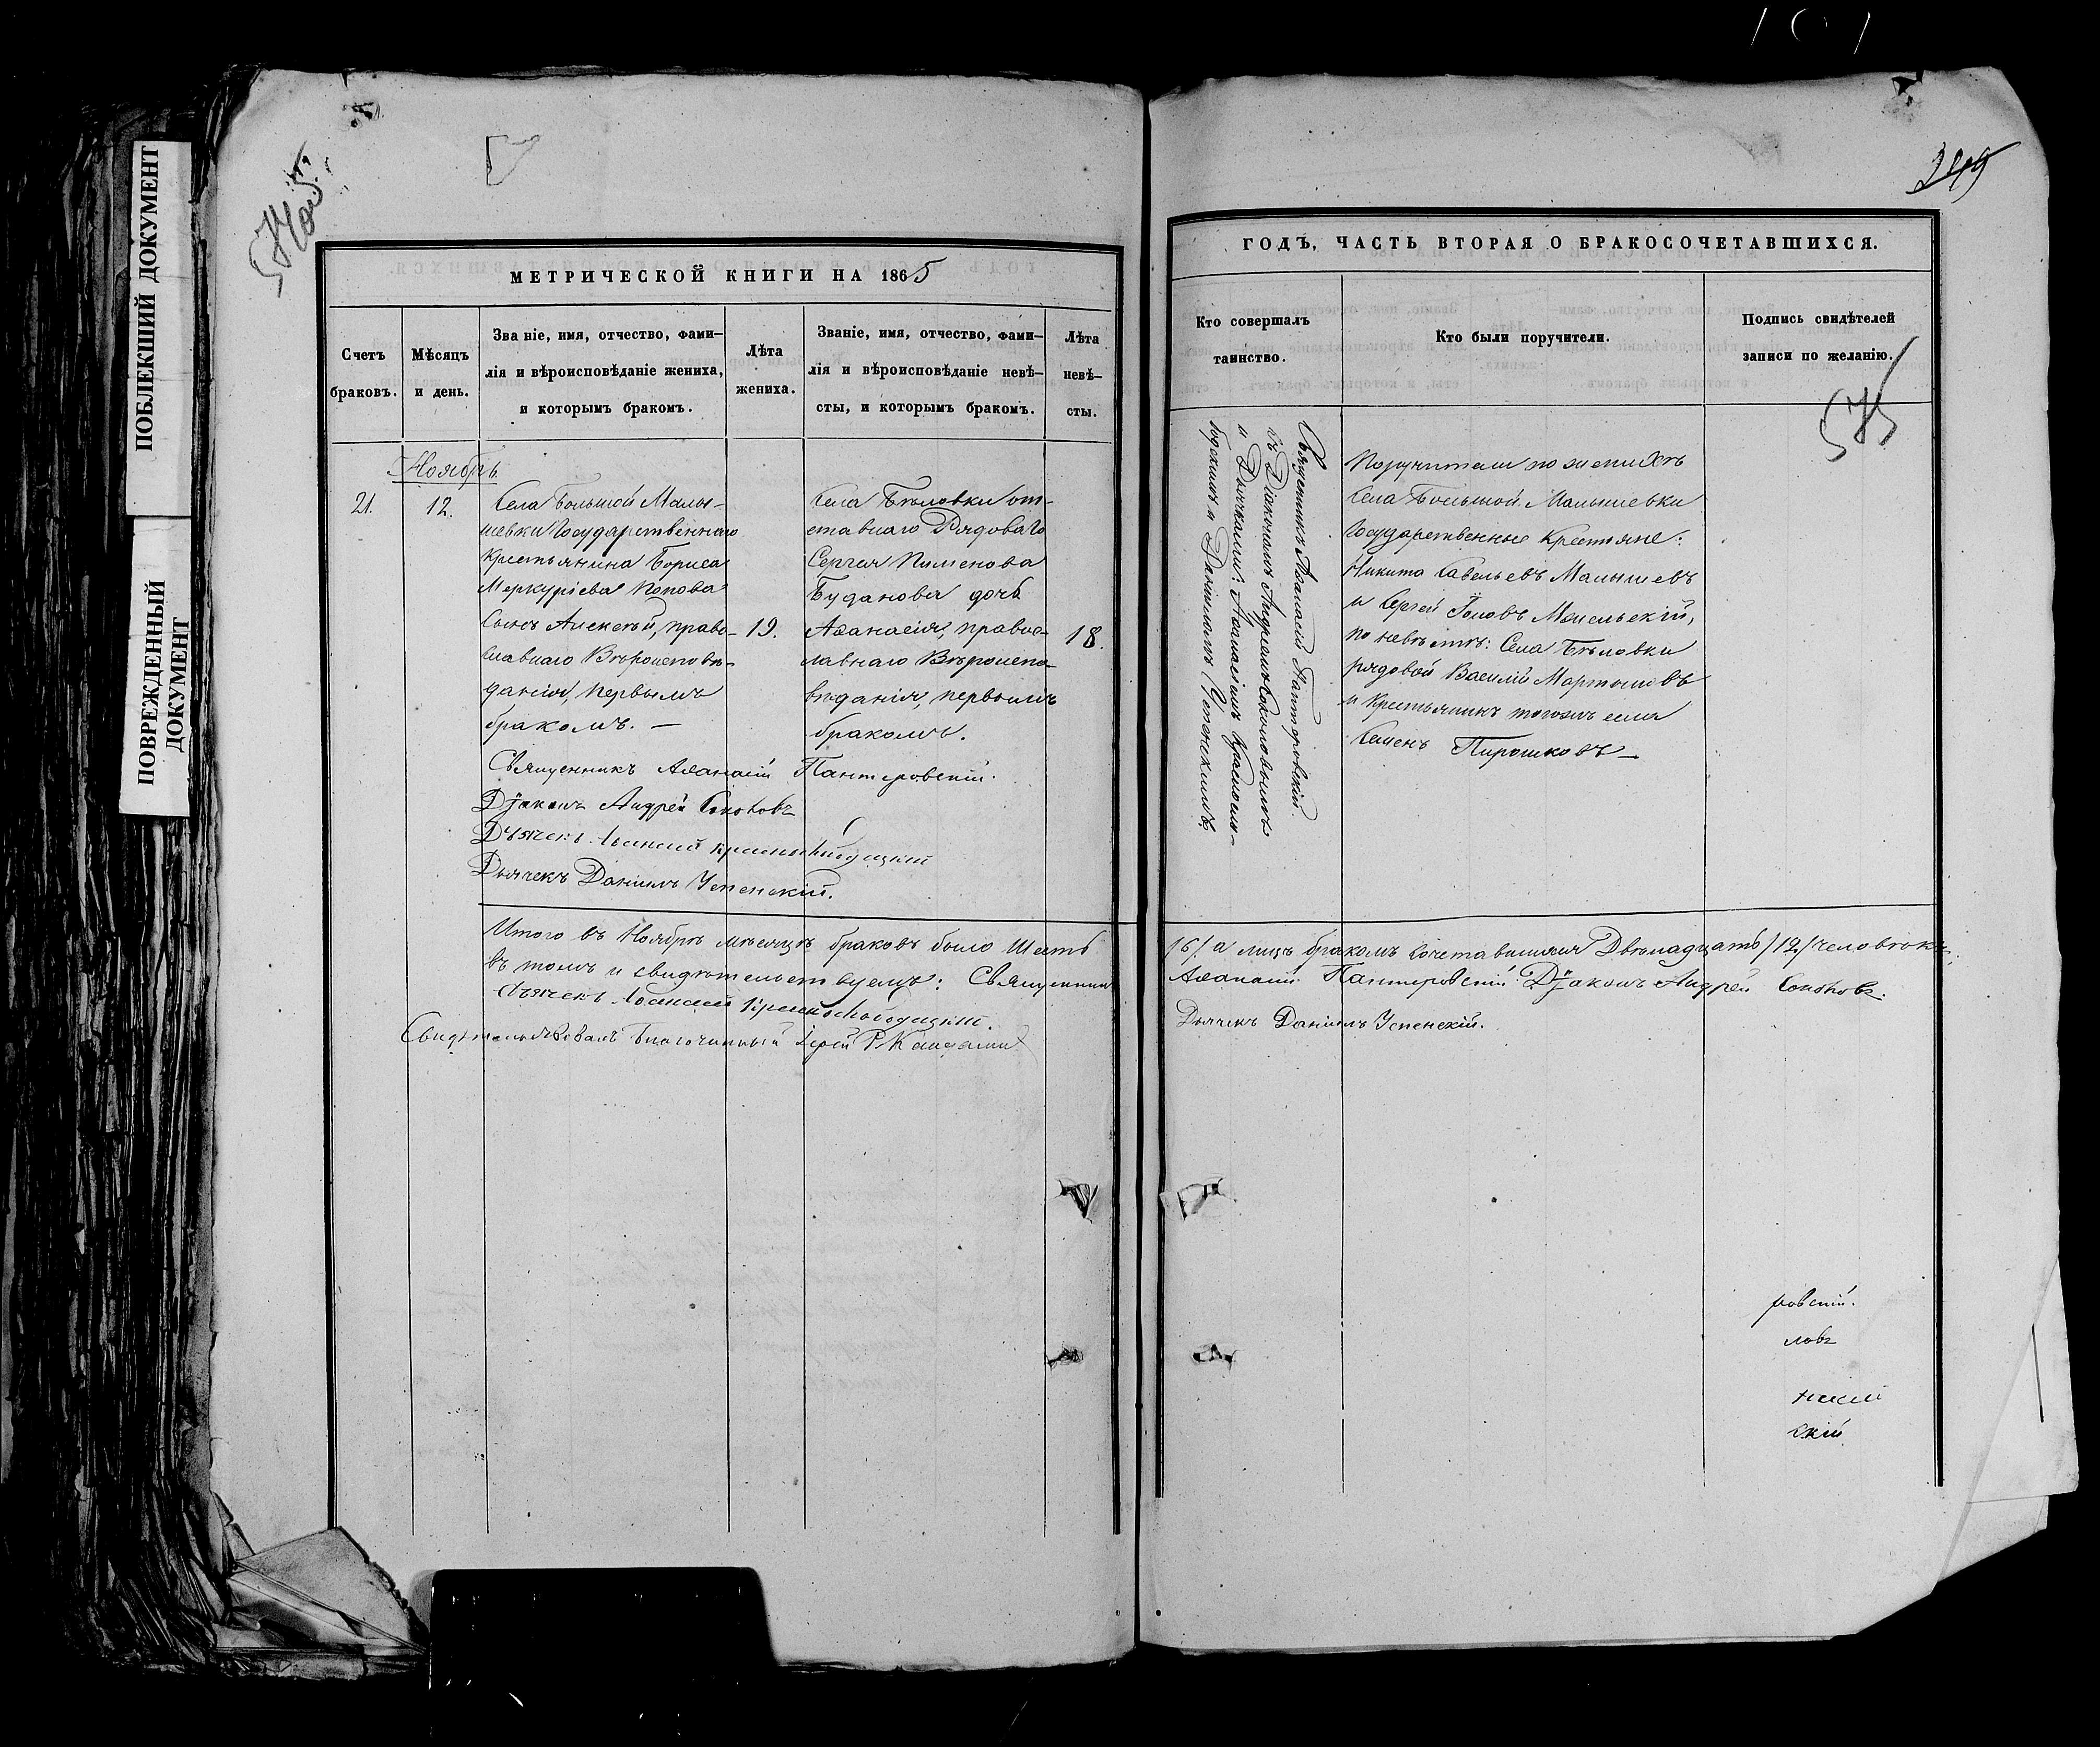 ПОБЛЕКШИЙ ДОКУМЕНТ
ПОВРЕЖДЕННЫЙ
ДОКУМЕНТ
МЕТРИЧЕСКОЙ КНИГИ НА 1865
Счетъ
браковъ.
Мѣсяцъ
и день.
Зва ніе, имя, отчество, фами-
лія и вѣроисповѣданіе жениха,
и которымъ бракомъ.
Лѣта
жениха.
Званіе, имя, отчество, фами-
лія и вѣроисповѣданіе невѣ-
сты, и которымъ бракомъ.
Лѣта
невѣ-
сты.
Ноябрь
21.
12.
Села Большой Малы-
шевки Государственнаго
Крестьянина Бориса
Меркуріева Попова
Сынъ Алексѣй, право-
славнаго Вѣроисповѣ-
данія, первымъ
бракомъ. —
19.
Села Бѣловки от-
ставнаго Рядоваго
Сергея Пименова
Буданова дочь
Аѳанасія, правос-
лавнаго Вѣроиспо-
вѣданія, первымъ
бракомъ.
18.
Священникъ Аѳанасій Пантеровскій.
Діаконъ Андрей Соколовъ
Дьячекъ Краснослободцкій
Дьячекъ Даніилъ Успенскій.
Итого въ Ноябрѣ мѣсяцѣ браковъ было Шесть
въ томъ и свидѣтельствуемъ: Священникъ
Дьячекъ Краснослободцкій.
Свидѣтельствовалъ Благочинный Іерей
249
ГОДЪ, ЧАСТЬ ВТОРАЯ О БРАКОСОЧЕТАВШИХСЯ.
Кто совершалъ
таинство.
Кто были поручители.
Подпись свидѣтелей
записи по желанію.
575
Священникъ Аѳанасій Пантеровскій
съ Діакономъ Андреемъ Соколовымъ
и Дьячками: Аѳанасіемъ Краснослo-
бодскимъ и Даніиломъ Успенскимъ.
Поручители по женихѣ
Села Большой Малышевки
Государственные Крестьяне:
Никита Савельевъ Малышевъ
и Сергей
по невѣстѣ: Села Бѣловки
рядовой Василій Мартышовъ
и Крестьянинъ тогожъ села
Семенъ Пирошковъ —
/6/. а лицъ бракомъ сочетавшихся Двѣнадцать /12/ человѣкъ.
Аѳанасій Пантеровскій Діаконъ Андрей Соколовъ.
Дьячекъ Даніилъ Успенскій.
ровскій.
ловъ
цкій
скій